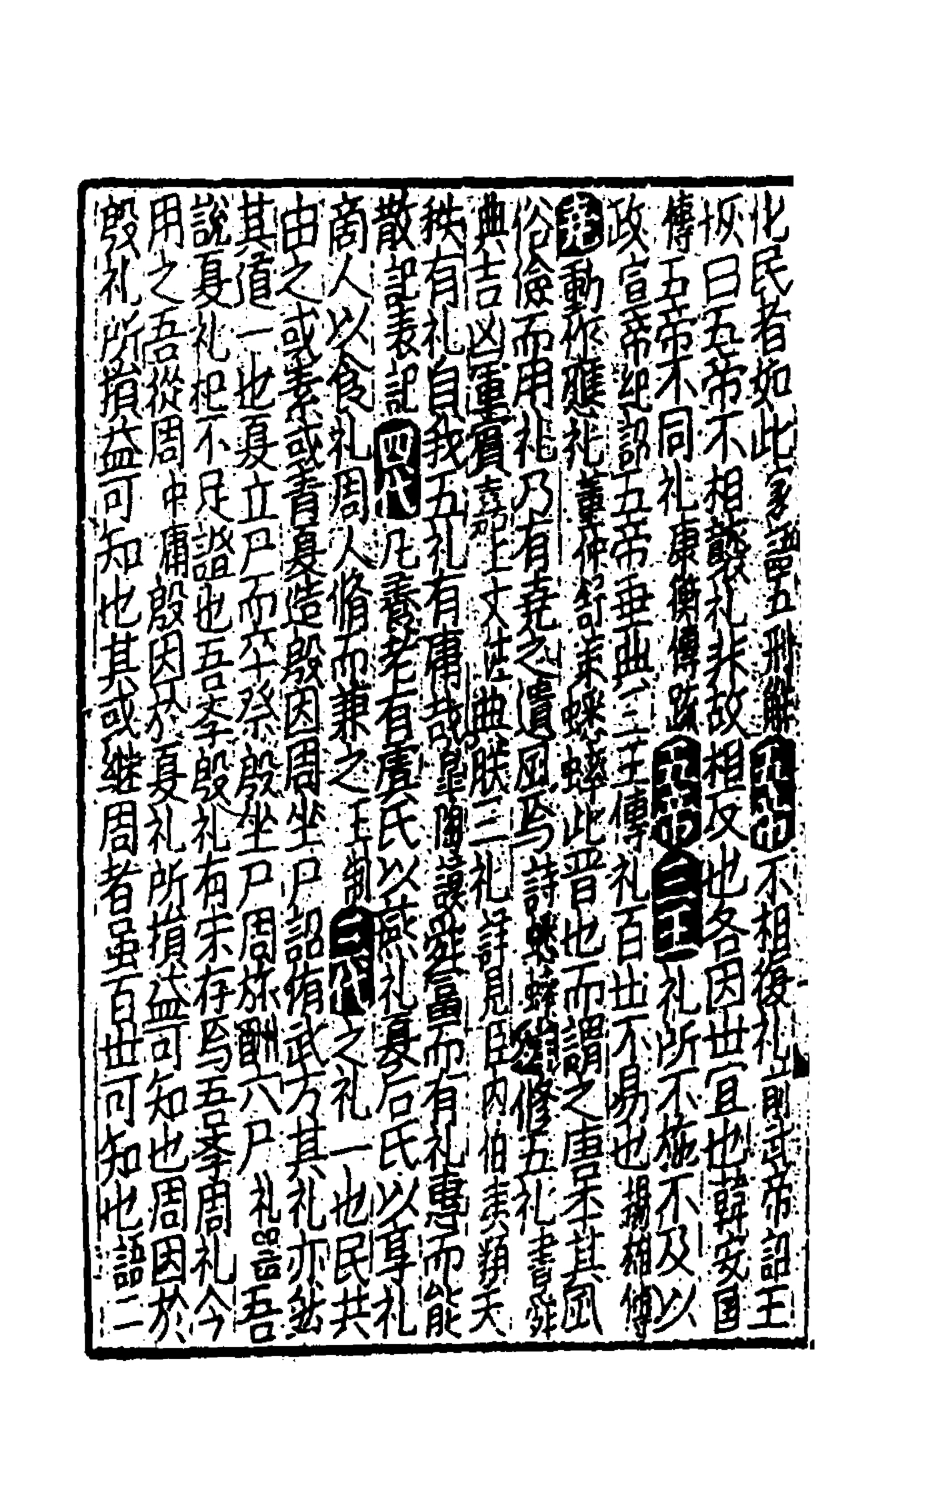 化民者如此家語五刑解五帝不相復礼前武帝詔王
恢曰五帝不相襲礼非故相反也各因世宜也韓安国
傳五帝不同礼康衡傳䟽五帝三王礼所不施不及以
政宣帝紀詔五帝垂典三王傳礼百世不易也揚雄傳
堯動作應礼董仲舒策蟋蟀此晋也而謂之唐本其風
俗儉而用礼乃有堯之遺風焉詩蟋蟀舜修五礼書舜
典吉凶軍賓嘉上文咨典朕三礼詳見臣内伯夷類天
秩有礼自我五礼有庸哉皐陶謨舜富而有礼惠而能
散記表記四代凡養老有虞氏以燕礼夏后氏以享礼
商人以食礼周人脩而兼之王制三代之礼一也民共
由之或素或青夏造殷因周坐尸詔侑武方其礼亦然
其道一也夏立尸而卒祭殷坐尸周旅酬六尸礼器吾
說夏礼杞不足證也吾斈殷礼有宋存焉吾斈周礼今
用之吾從周中庸殷因於夏礼所損益可知也周因於
殷礼所損益可知也其或継周者虽百世可知也語二